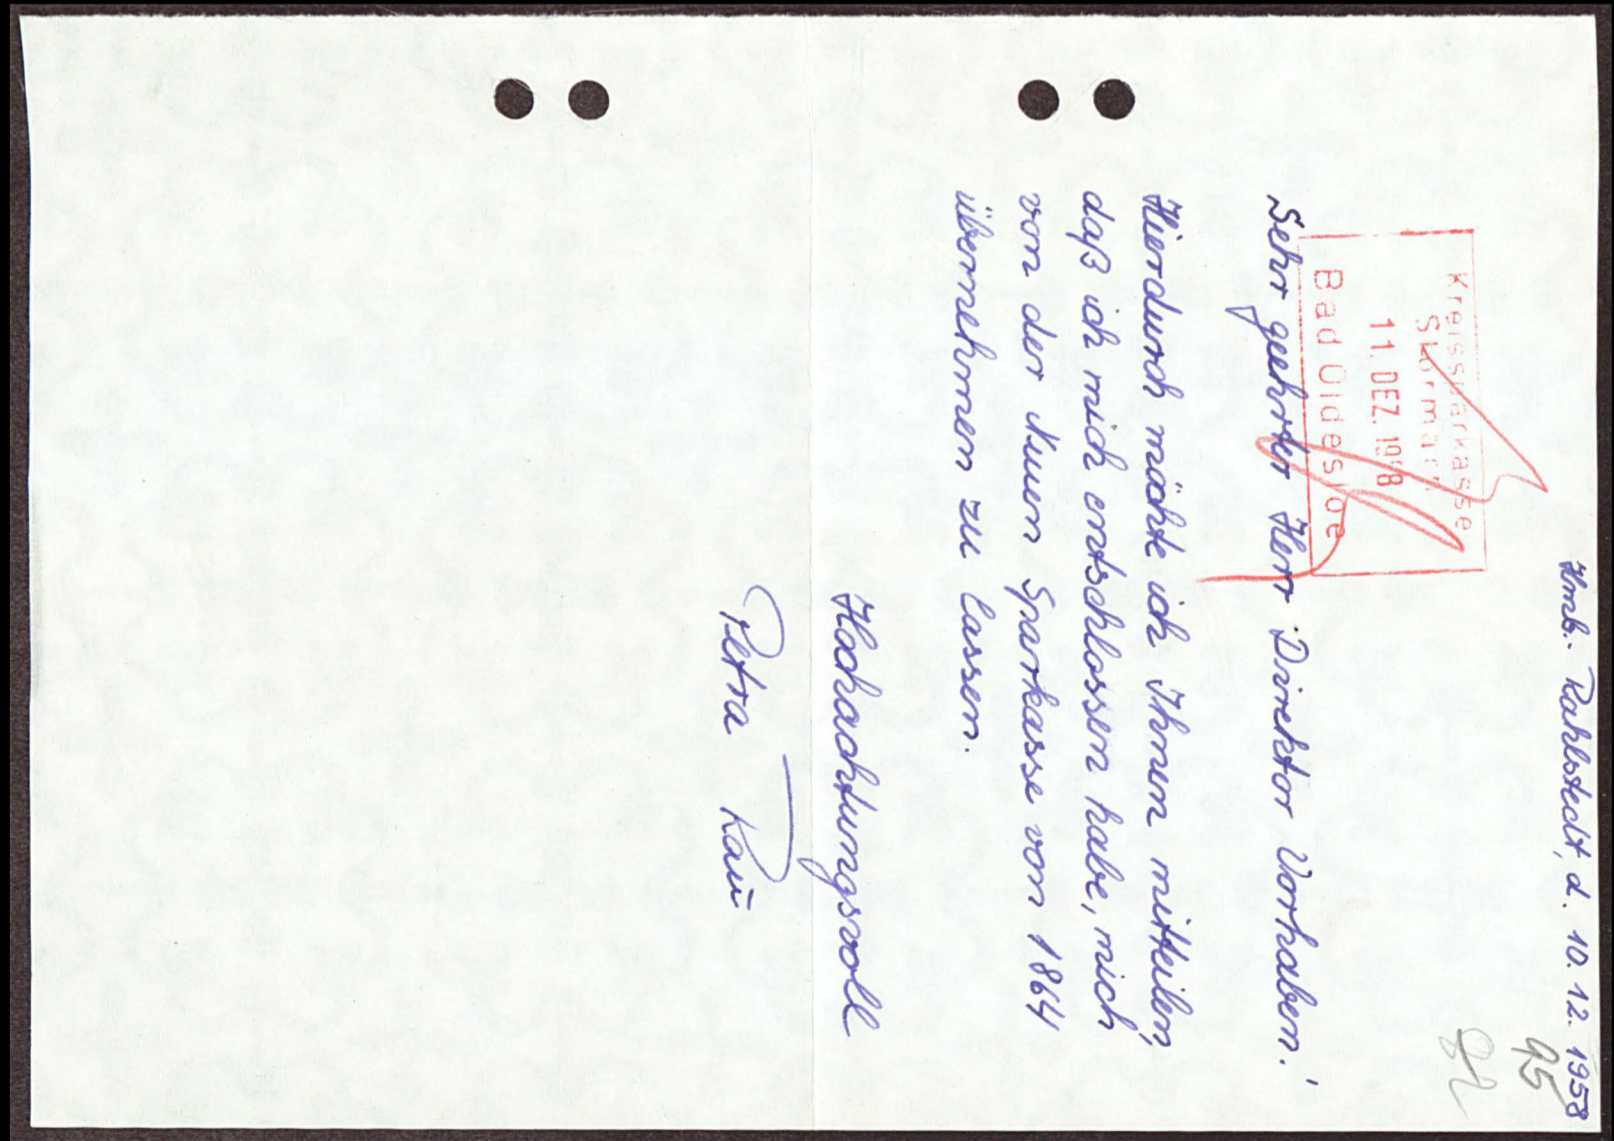 Hmb. Rahlstedt, d. 10. 12. 1958
95
82
Kreissparkasse
Stormarn
11. DEZ. 1958
Bad Oldesloe
Sehr geehrter Herr Direktor Vorhaben!
Hierdurch möchte ich Ihnen mitteilen,
daß ich mich entschlossen habe, mich
von der Neuen Sparkasse von 1864
übernehmen zu lassen.
Hochachtungsvoll
Petra